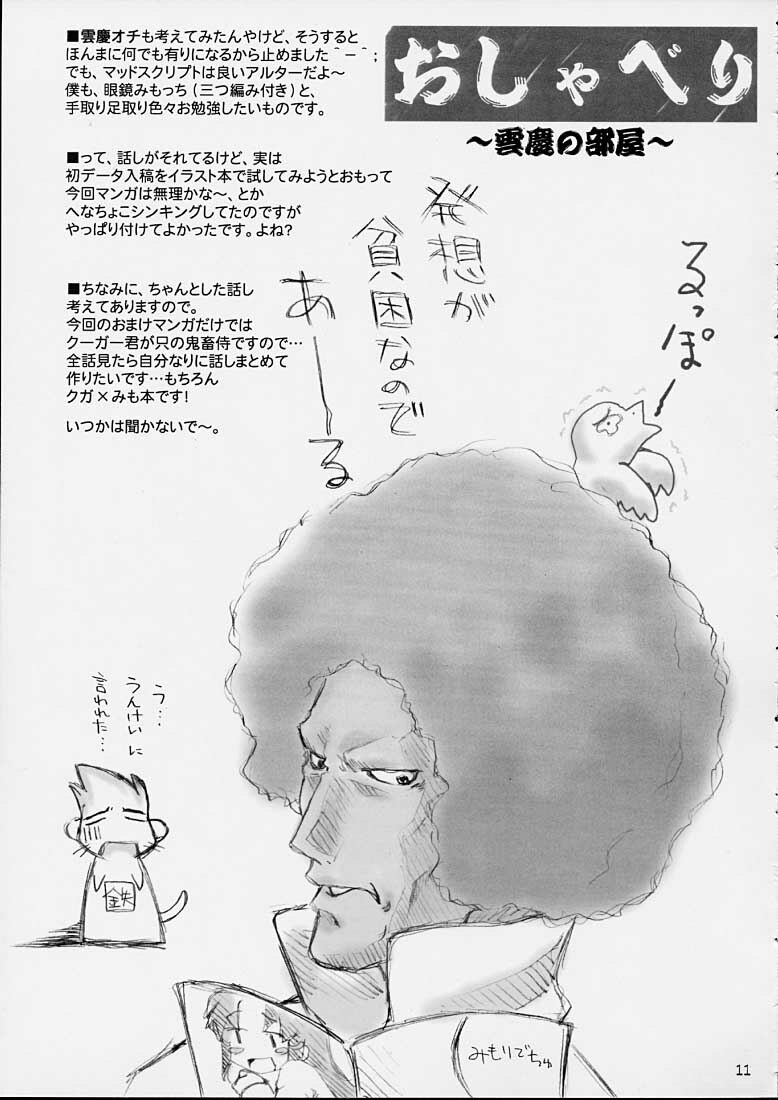 おしゃべり
～雲慶の部屋～
■雲慶オチも考えてみたんやけど、そうすると
ほんまに何でも有りになるから止めました＾－＾；
でも、マッドスクリプトは良いアルターだよ～
僕も、眼鏡みもっち（三つ編み付き）と、
手取り足取り色々お勉強したいものです。
■って、話しがそれてるけど、実は
初データ入稿をイラスト本で試してみようとおもって
今回マンガは無理かな～、とか
へなちょこシンキングしてたのですが
やっぱり付けてよかったです。よね？
■ちなみに、ちゃんとした話し
考えてありますので。
今回のおまけマンガだけでは
クーガー君が只の鬼畜侍ですので…
全話見たら自分なりに話しまとめて
作りたいです…もちろん
クガ×みも本です！
いつかは聞かないで～。
発想が
貧困なので
あーーる
るっぽー
う…
うんけいに
言われた…
鉄
みもりでちゅ
11